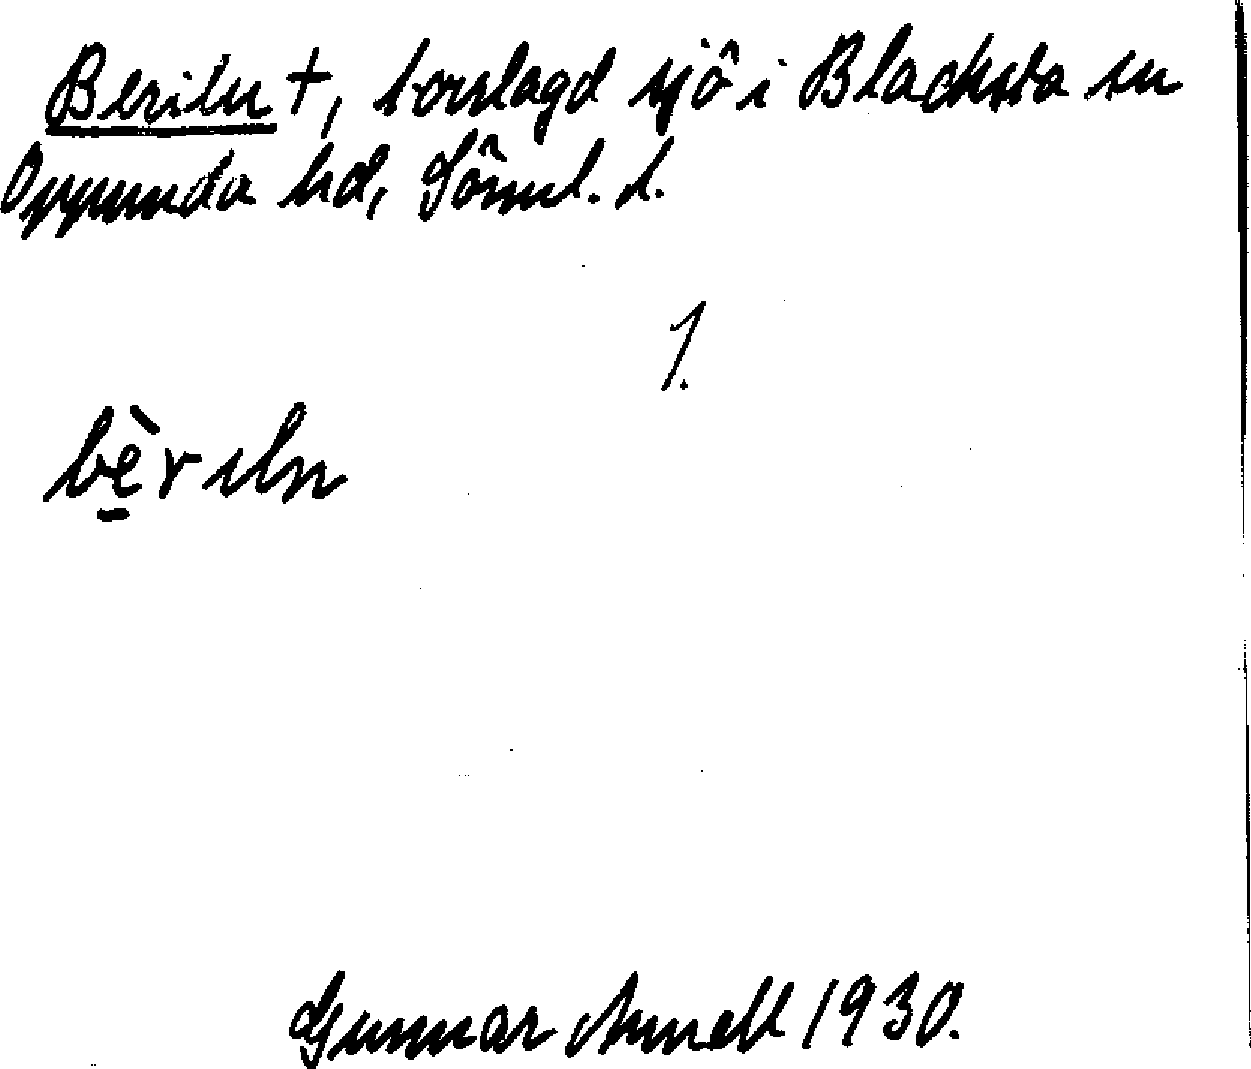 Berilen †, torrlagd sjö i Blacksta sn
Oppunda hd, Söml. l.
1.
bèriln
Gunnar Arnell 1930.